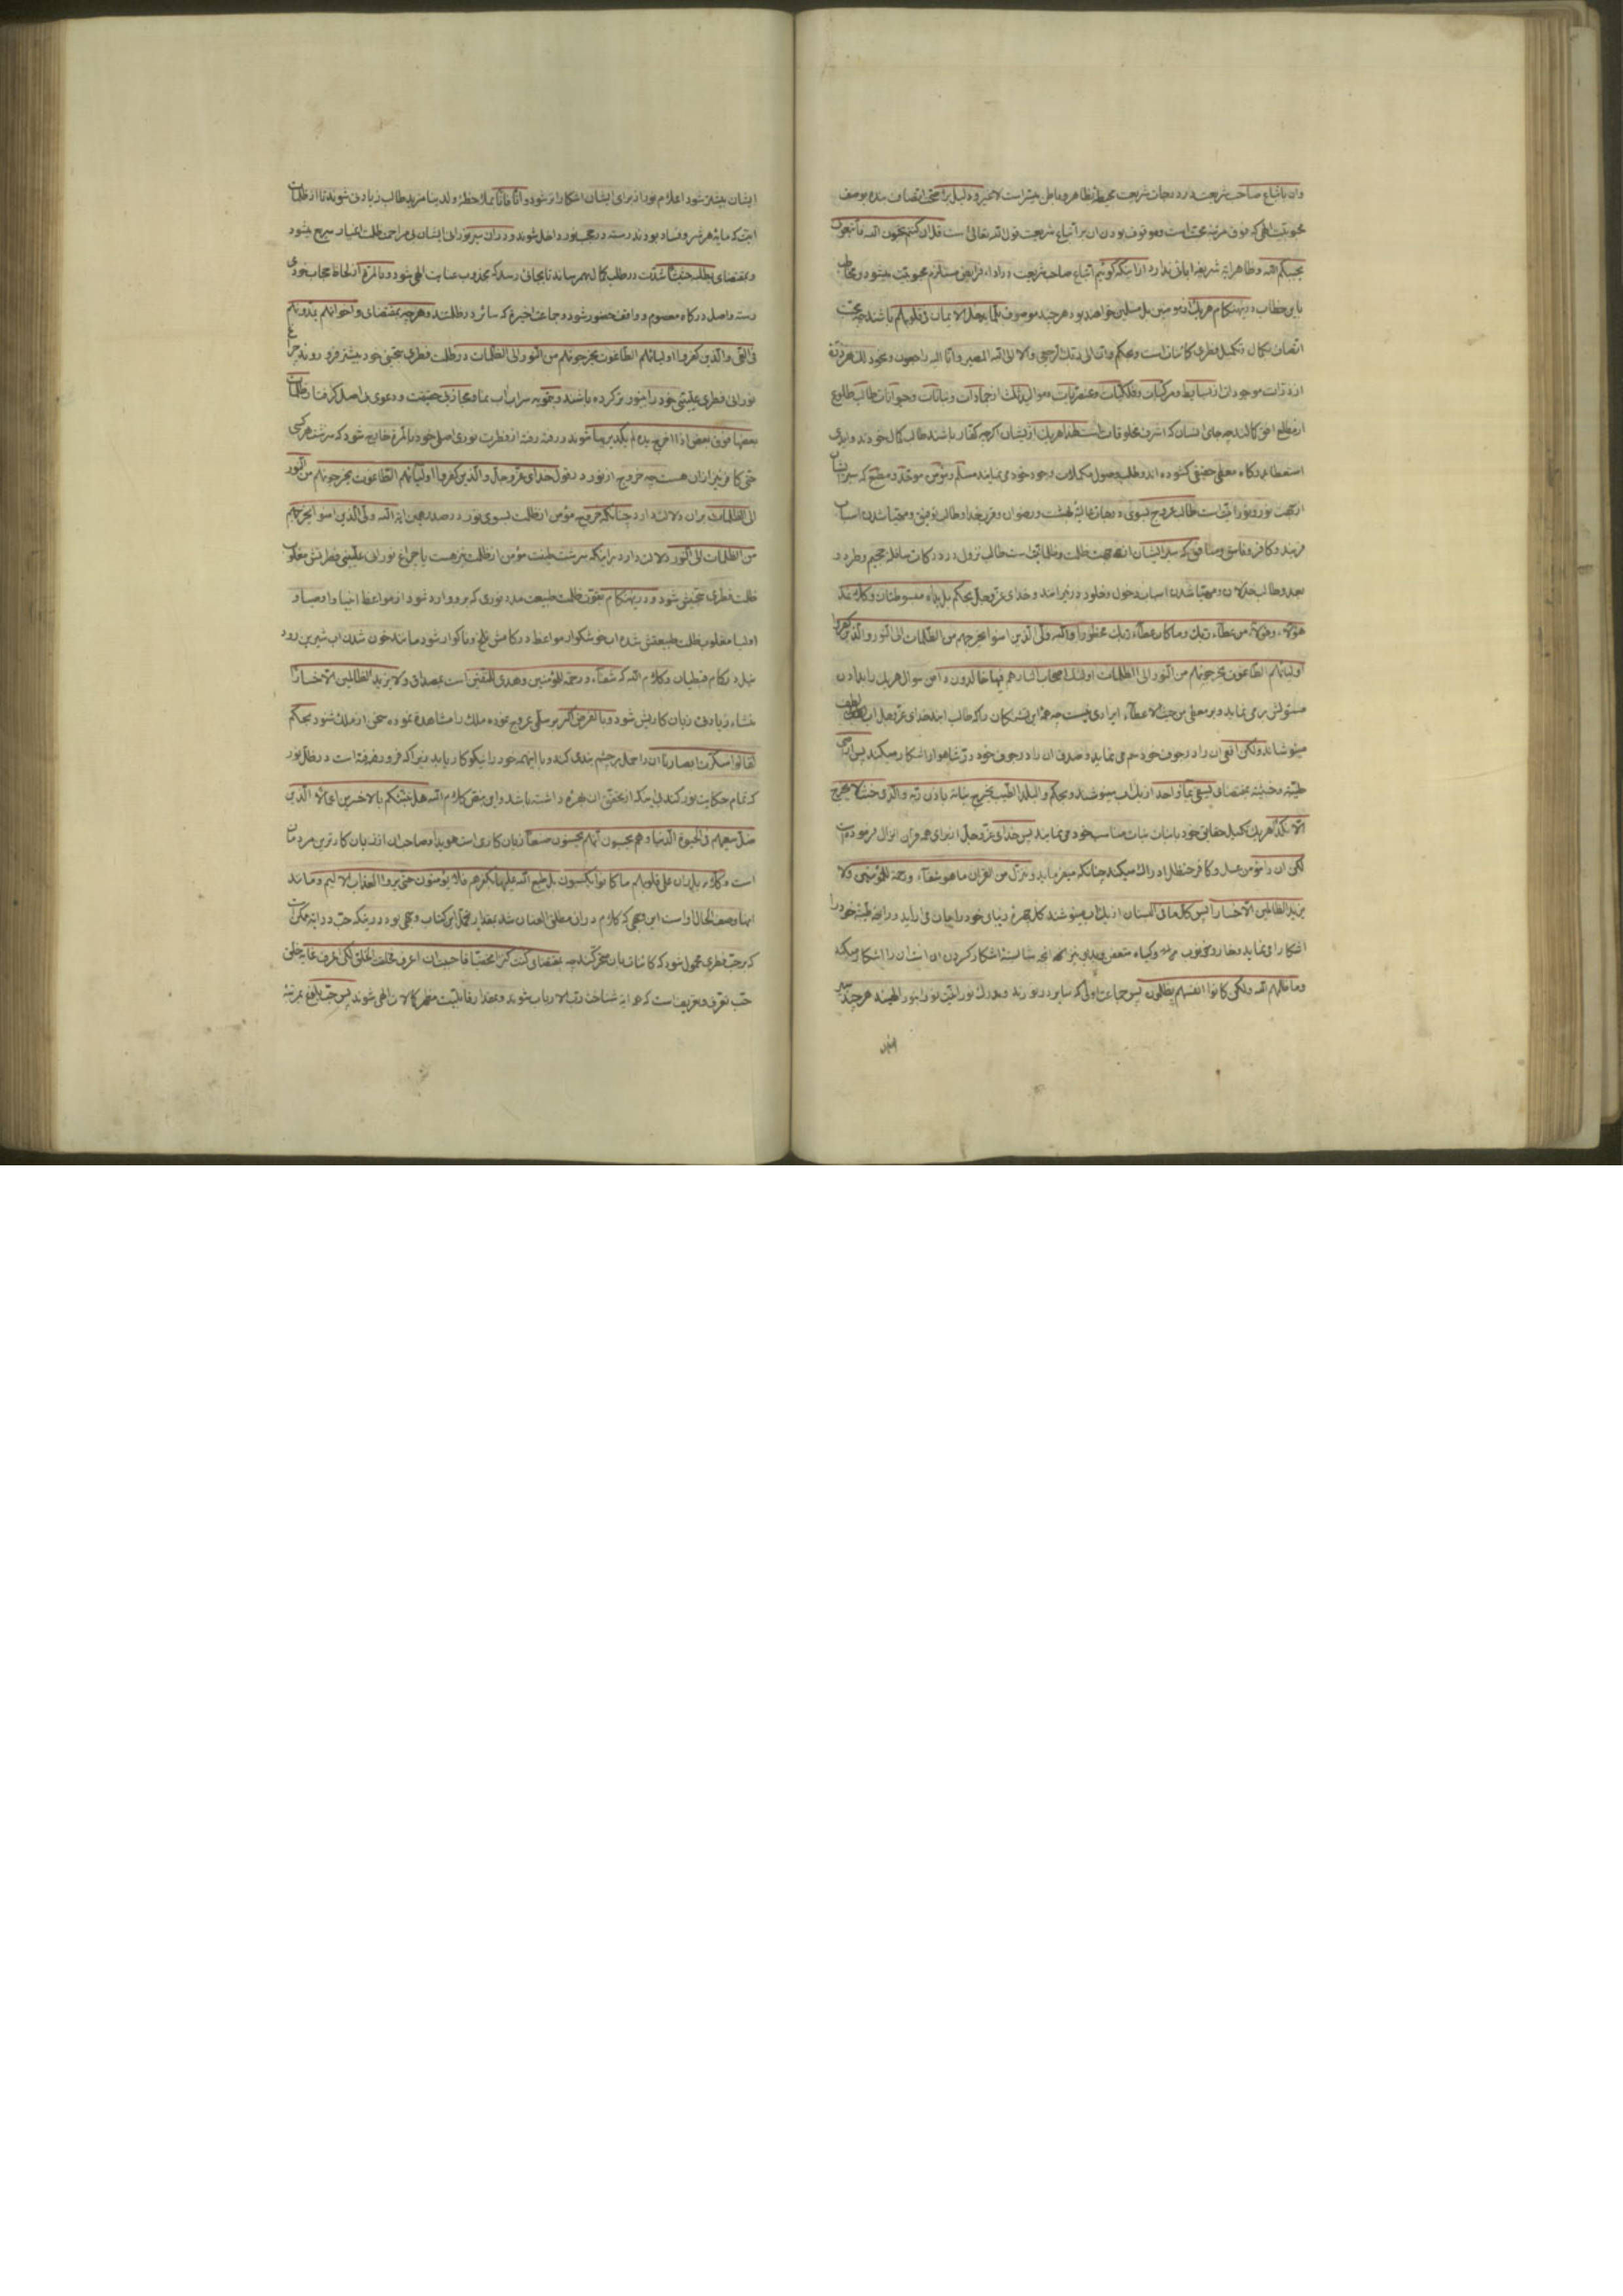 وان باتباع صاحب شریعت در درجات شریعت محیط بظاهر و باطن میسر است لا غیر و دلیل بر صحت اتصاف بنده بوصف
محبوبیت الهی که فوق مرتبه محبت است و موقوف بودن ان بر اتباع شریعت قول الله تعالی است قل ان کنتم تحبون الله فاتبعونی
یحببکم الله و ظاهر ایه شریفه ابائی ندارد از اینکه گوئیم اتباع صاحب شریعت در اداء فرایض مستلزم محبوبیت میشود و مخاطب
باین خطاب درینهنکام هریک از مومنین بل مسلمین خواهند بود هرچند موصوف بلما یدخل الایمان فی قلوبهم باشند چه محبت
اتصاف بکمال و تکمیل فطری کائنات است و بحکم وان الی ربک الرجعی والا الی الله المصیر وانا الیه راجعون و نحو ذلک هر ذره
از ذرات موجودات از بسایط و مرکبات و فلکیات و عنصریات و موالید ثلث از جمادات و نباتات و حیوانات طالب طلوع
از مطلع افق کمالند چه جای انسان که اشرف مخلوقات است لهذا هریک از ایشان اگرچه کفار باشند طالب کمال خودند و ایدی
استعطا بدرکاه معطی حقیقی کشوده اند و طلب وصول مکملات وجود خود می نمایند مسلم و مؤمن موحد و مطیع که سیر ایشان
از جهت نور و نورانیت است طالب عروج بسوی درجات عالیه بهشت و رضوان و قرب خدا و طالب توفیق و مهیا شدن اسباب
قربند و کافر و فاسق و منافق که سیر ایشان از جهت ظلمت و ظلمانیت است طالب نزول در درکات سافله جحیم و طرد و
بعد و طالب خذلان و مهیا شدن اسباب دخول و خلود در نیرانند و خدای عز و جل بحکم بل یداه مبسوطتان و کلا نمد
هؤلاء وهؤلاء من عطاء ربک وما کان عطاء ربک محظورا والله ولی الذین امنوا یخرجهم من الظلمات الی النور والذین کفروا
اولیائهم الطاغوت یخرجونهم من النور الی الظلمات اولئک اصحاب النار هم فیها خالدون دامن سوال هریک را بدادن
مسئولش پر می نماید و بر معطی من حیث الاعطاء ایرادی نیست چه همه این تشنکان را که طالب ابند خدای عز و جل اب لطیف
مینوشاند ولکن افعی ان را در جوف خود سم می نماید و صدف ان را در جوف خود در شاهوار اشکار میکند پس اراضی
طیبه و خبیثه بمقتضای یسقی بماء واحد از یک اب مینوشند و بحکم والبلد الطیب یخرج نباته باذن ربه والذی خبث لا یخرج
الا نکدا هریک تکمیل حقایق خود بانبات نبات مناسب خود می نمایند پس خدای عز و جل از برای همه قران انزال فرموده است
لکن ان را مؤمن عسل و کافر حنظل ادراک میکند چنانکه میفرماید وننزل من القران ما هو شفاء ورحمة للمؤمنین ولا
یزید الظالمین الا خسارا پس کل ما فی البستان از یک اب مینوشند کل چهره زیبای خود را بیان می اراید و رایحه طیبه خود را
اشکار می نماید و خار و
وما ظلمهم الله ولکن کانوا انفسهم یظلمون پس جماعت اولی که سایر در نورند و مدرک نورانیت نور انور الهیند هرچند سیر
ایشان
ایشان بیشتر شود اعلام نور از برای ایشان اشکارا تر شود و انا فانا بملاحظه ولدینا مزید طالب زیادتی شوند تا از ظلمات
انیت که مایه هر شر و فساد بود ندرسته در حجب نور داخل شوند و دران سیر نورانی ایشان بی مزاحمی ظلمت اغیار سریع میشود
و بمقتضای یطلبه حثیثا شدت در طلب کمال بهم رسانند تا بجائی رسد که مجذوب عنایت الهی شود و بالمره از لحاظ حجاب خودی
رسته واصل درکاه معصوم و واقف حضور شود و جماعت اخیره که سائر در ظلمتند و هرچه بمقتضای واخوانهم یمدونهم
فی الغی والذین کفروا اولیائهم الطاغوت یخرجونهم من النور الی الظلمات در ظلمت فطری سجینی خود بیشتر فرو روند چراغ
نورانی فطری علیینی خود را بی نور تر کرده باشند و بتمویه سراب اب نما و مجاز بی حقیقت و دعوی بی اصل کرفتار ظلمات
بعضها فوق بعض اذا اخرج یده لم یکد یریها شوند و رفته رفته از فطرت نوری اصلی خود بالمره خارج شود که سرشت هر کسی
حتی کافر نیز از ان هست چه خروج از نور در قول خدای عز و جل والذین کفروا اولیائهم الطاغوت یخرجونهم من النور
الی الظلمات بران دلالت دارد چنانکه خروج مؤمن از ظلمت بسوی نور در صدر همین ایه الله ولی الذین امنوا یخرجهم
من الظلمات الی النور دلالت دارد براینکه سرشت طینت مؤمن از ظلمت نیز هست یا چراغ نورانی علیینی فطرتش مغلوب
ظلمت فطری سجینش شود و درینهنکام بقوت ظلمت طبیعت مدد نوری که بر و وارد شود از مواعظ انبیا و اوصیا و
اولیا مغلوب ظلمت طبیعتش شده اب خوشکوار مواعظ در کامش تلخ و ناکوار شود مانند خون شدن اب شیرین رود
نیل در کام قبطیان و کلام الله که شفاء ورحمة للمؤمنین وهدی للمتقین است بمصداق ولا یزید الظالمین الا خسارا
منشاء زیادتی زیان کاریش شود و بالفرض اگر بر سلم عروج نموده ملک را مشاهده نموده سخن از ملک شنود بحکم
لقالوا سکرت ابصارنا ان را حمل بر چشم بندی کند و با اینهمه خود را نیکوکار یابد
که تمام حکایت نور کند بی اینکه از تحقق ان بهره داشته باشد و این نص کلام الله هل ننبئکم بالاخسرین اعمالا الذین
ضل سعیهم فی الحیوة الدنیا وهم یحسبون انهم یحسنون صنعا زیان کاری است هویدا و صاحب ان از زیان کارترین مردمان
است و کلا بل ران علی قلوبهم ما کانوا یکسبون بل طبع الله علیها بکفرهم فلا یؤمنون حتی یروا العذاب الالیم و مانند
اینها وصف الحال او است این بود
که بر حب فطری محمول شود که کائنات بان مفطورند چه بمقتضای کنت کنزا مخفیا فاحببت ان اعرف فخلقت الخلق لکی اعرف غایة خلق
حب تعرف و تعریف است که هرایه شناخت رب الارباب شوند و بمقدار قابلیت مظهر کمالات الهی شوند پس حب بلوغ بمرتبه